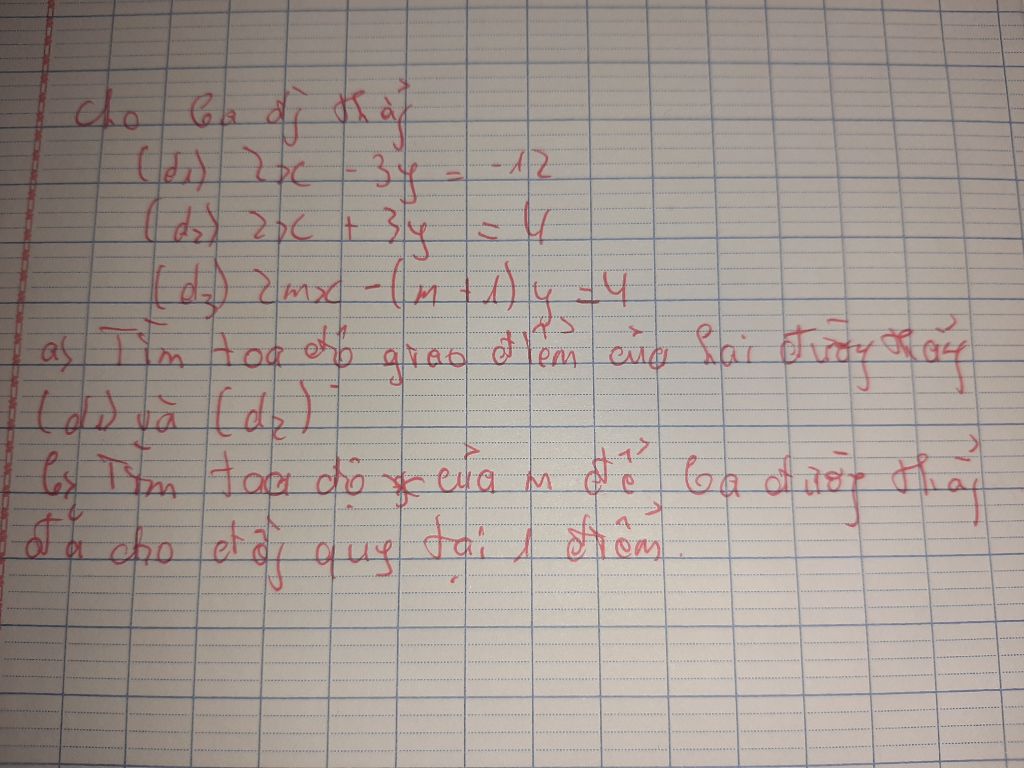 Cho ba đg thẳg
(d1) 2x - 3y = -12
(d2) 2x + 3y = 4
(d3) 2mx - (m + 1) y = 4
a, Tìm toạ độ giao điểm của hai đường thẳg
(d1) và (d2)
b, Tìm toạ độ của m để ba đường thẳg
đã cho đồg quy tại 1 điểm.